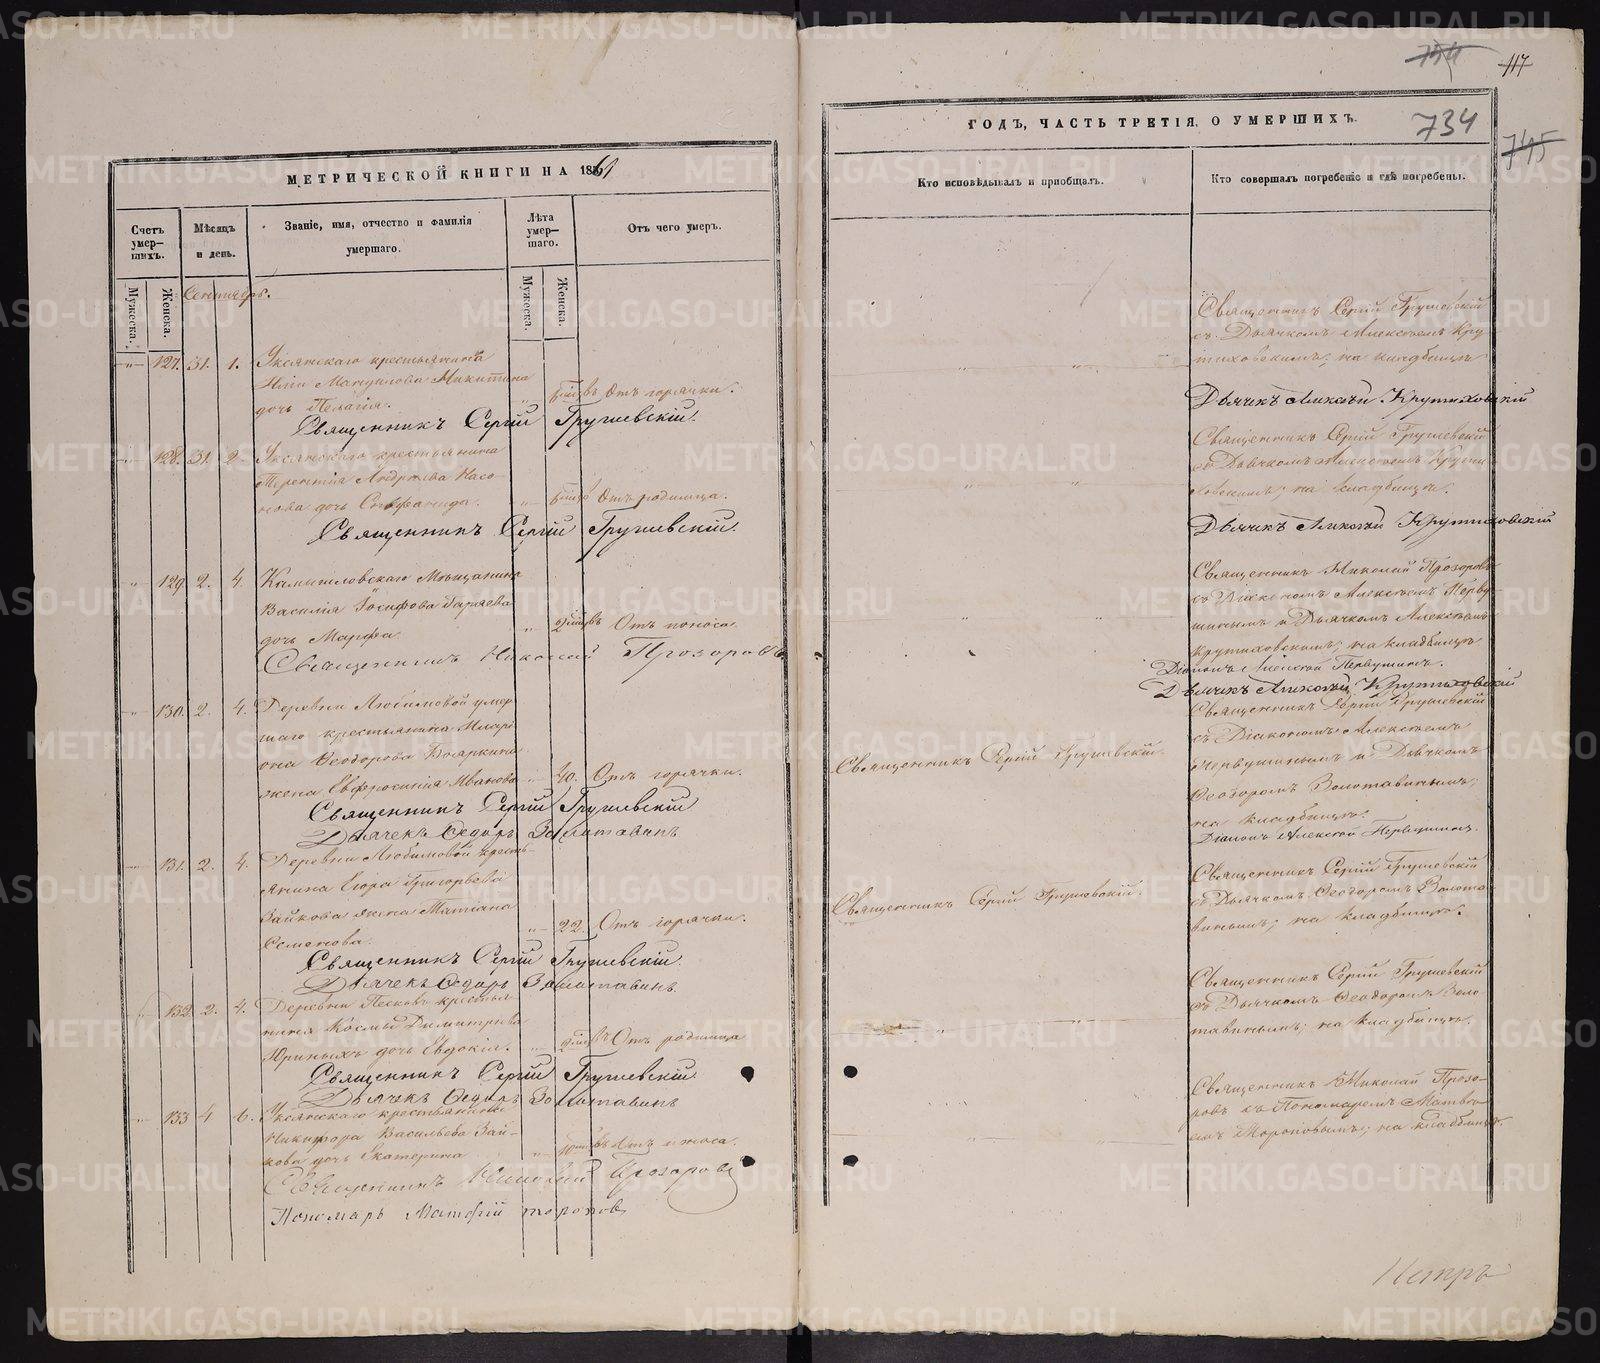 МЕТРИЧЕСКОЙ КНИГИ НА 1869
Счетъ умер-шихъ.
Мѣсяцъ и день.
Званіе, имя, отчество и фамилія умершаго.
Лѣта умер-шаго.
Отъ чего умеръ.
Мужеска.
Женска.
Мужеска.
Женска.
Сентябрь.
127. 31. 1. Уксянскаго крестьянина
Никитина
дочь Пелагія. Отъ горячки.
Священникъ Сергій Грушевскій.
128. 31. 2. Уксянскаго крестьянина
Терентія Андреева Насо-
нова дочь Отъ родимца.
Священникъ Сергій Грушевскій.
129. 2. 4. Камышловскаго Мѣщанина
Василія Іосифова
дочь Марфа. Отъ поноса.
Священникъ Николай Прозоровъ
130. 2. 4. Деревни Любимовой умер-
шаго крестьянина Илари-
она Ѳеодорова Бояркина
жена Евфросинія Иванова 40. Отъ горячки.
Священникъ Сергій Грушевскій
Дьячекъ Ѳедоръ Золотавинъ
131. 2. 4. Деревни Любимовой кресть-
янина Егора Григорьева
Зайкова жена Татіана
Семенова. 22. Отъ горячки.
Священникъ Сергій Грушевскій.
Дьячекъ Ѳедоръ Золотавинъ.
132. 2. 4. Деревни Песковъ крестья-
нина Космы Димитріева
Юриныхъ дочь Евдокія. Отъ родимца
Священникъ Сергій Грушевскій.
Дьячекъ Ѳедоръ Золотавинъ
133 4 6. Уксянскаго крестьянина
Никифора Васильева Зай-
кова дочь Екатерина Отъ поноса.
Священникъ Николай Прозоровъ
Пономарь Матфій Тороповъ
734
117
ГОДЪ, ЧАСТЬ ТРЕТІЯ, О УМЕРШИХЪ.
734
745
Кто исповѣдывалъ и пріобщалъ.
Кто совершалъ погребеніе и гдѣ погребены.
Священникъ Сергій Грушевскій
съ Дьячкомъ Алексѣемъ Кру-
тиховскимъ; на кладбищѣ
Дьячекъ Алексѣй Крутиховскій
Священникъ Сергій Грушевскій
съ Дьячкомъ Алексѣемъ Крути-
ховскимъ; на кладбищѣ.
Дьячекъ Алексѣй Крутиховскій
Священникъ Николай Прозоровъ
съ Діакономъ Алексѣемъ Перву-
шинымъ и Дьячкомъ Алексѣемъ
Крутиховскимъ; на кладбищѣ
Діаконъ Алексѣй Первушинъ.
Дьячекъ Алексѣй Крутиховскій
Священникъ Сергій Грушевскій.
Священникъ Сергій Грушевскій
съ Діакономъ Алексѣемъ
Первушинымъ и Дьячкомъ
Ѳеодоромъ Золотавинымъ;
на кладбищѣ.
Діаконъ Алексѣй Первушинъ.
Священникъ Сергій Грушевскій.
Священникъ Сергій Грушевскій
съ Дьячкомъ Ѳеодоромъ Золота-
винымъ; на кладбищѣ.
Священникъ Сергій Грушевскій
съ Дьячкомъ Ѳеодоромъ Золо-
тавинымъ; на кладбищѣ.
Священникъ Николай Прозо-
ровъ съ Пономаремъ Матвѣ-
емъ Тороповымъ; на кладбищѣ.
Петръ
METRIKI.GASO-URAL.RU